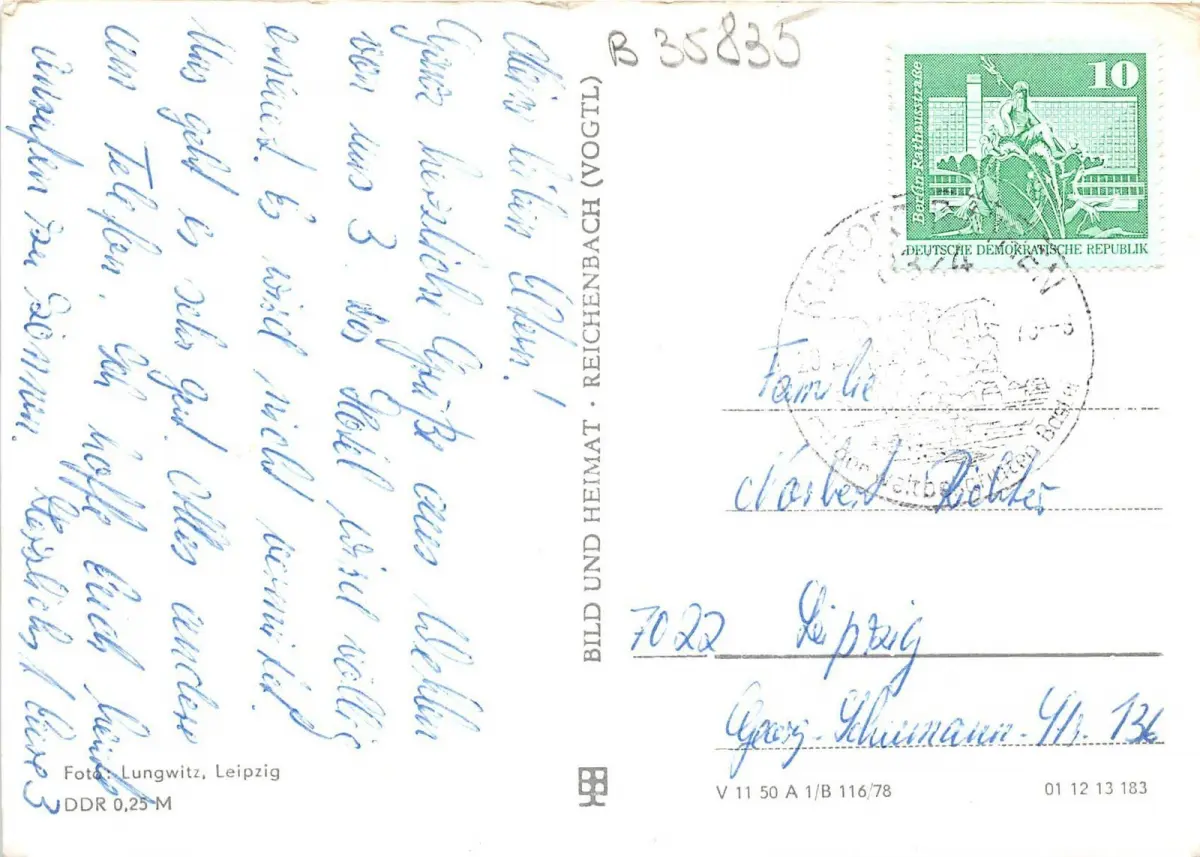 B 35835
Meine lieben Eltern!
Ganz herzliche Grüße aus Wehlen
von uns 3. Das Hotel wird völlig
erneuert. Es wird nicht vermietet
Uns geht es sehr gut. Alles andere
am Telefon. Ich hoffe Euch
anrufen zu können.
Herzlichst Eure 3
Foto: Lungwitz, Leipzig
DDR 0,25 M
BILD UND HEIMAT · REICHENBACH (VOGTL)
10
Berlin-Rathausstraße
DEUTSCHE DEMOKRATISCHE REPUBLIK
KURORT
8324
der weltberühmten Bastei
Familie
Norbert Richter
7022 Leipzig
Georg-Schumann-Str. 136
V 11 50 A 1/B 116/78
01 12 13 183